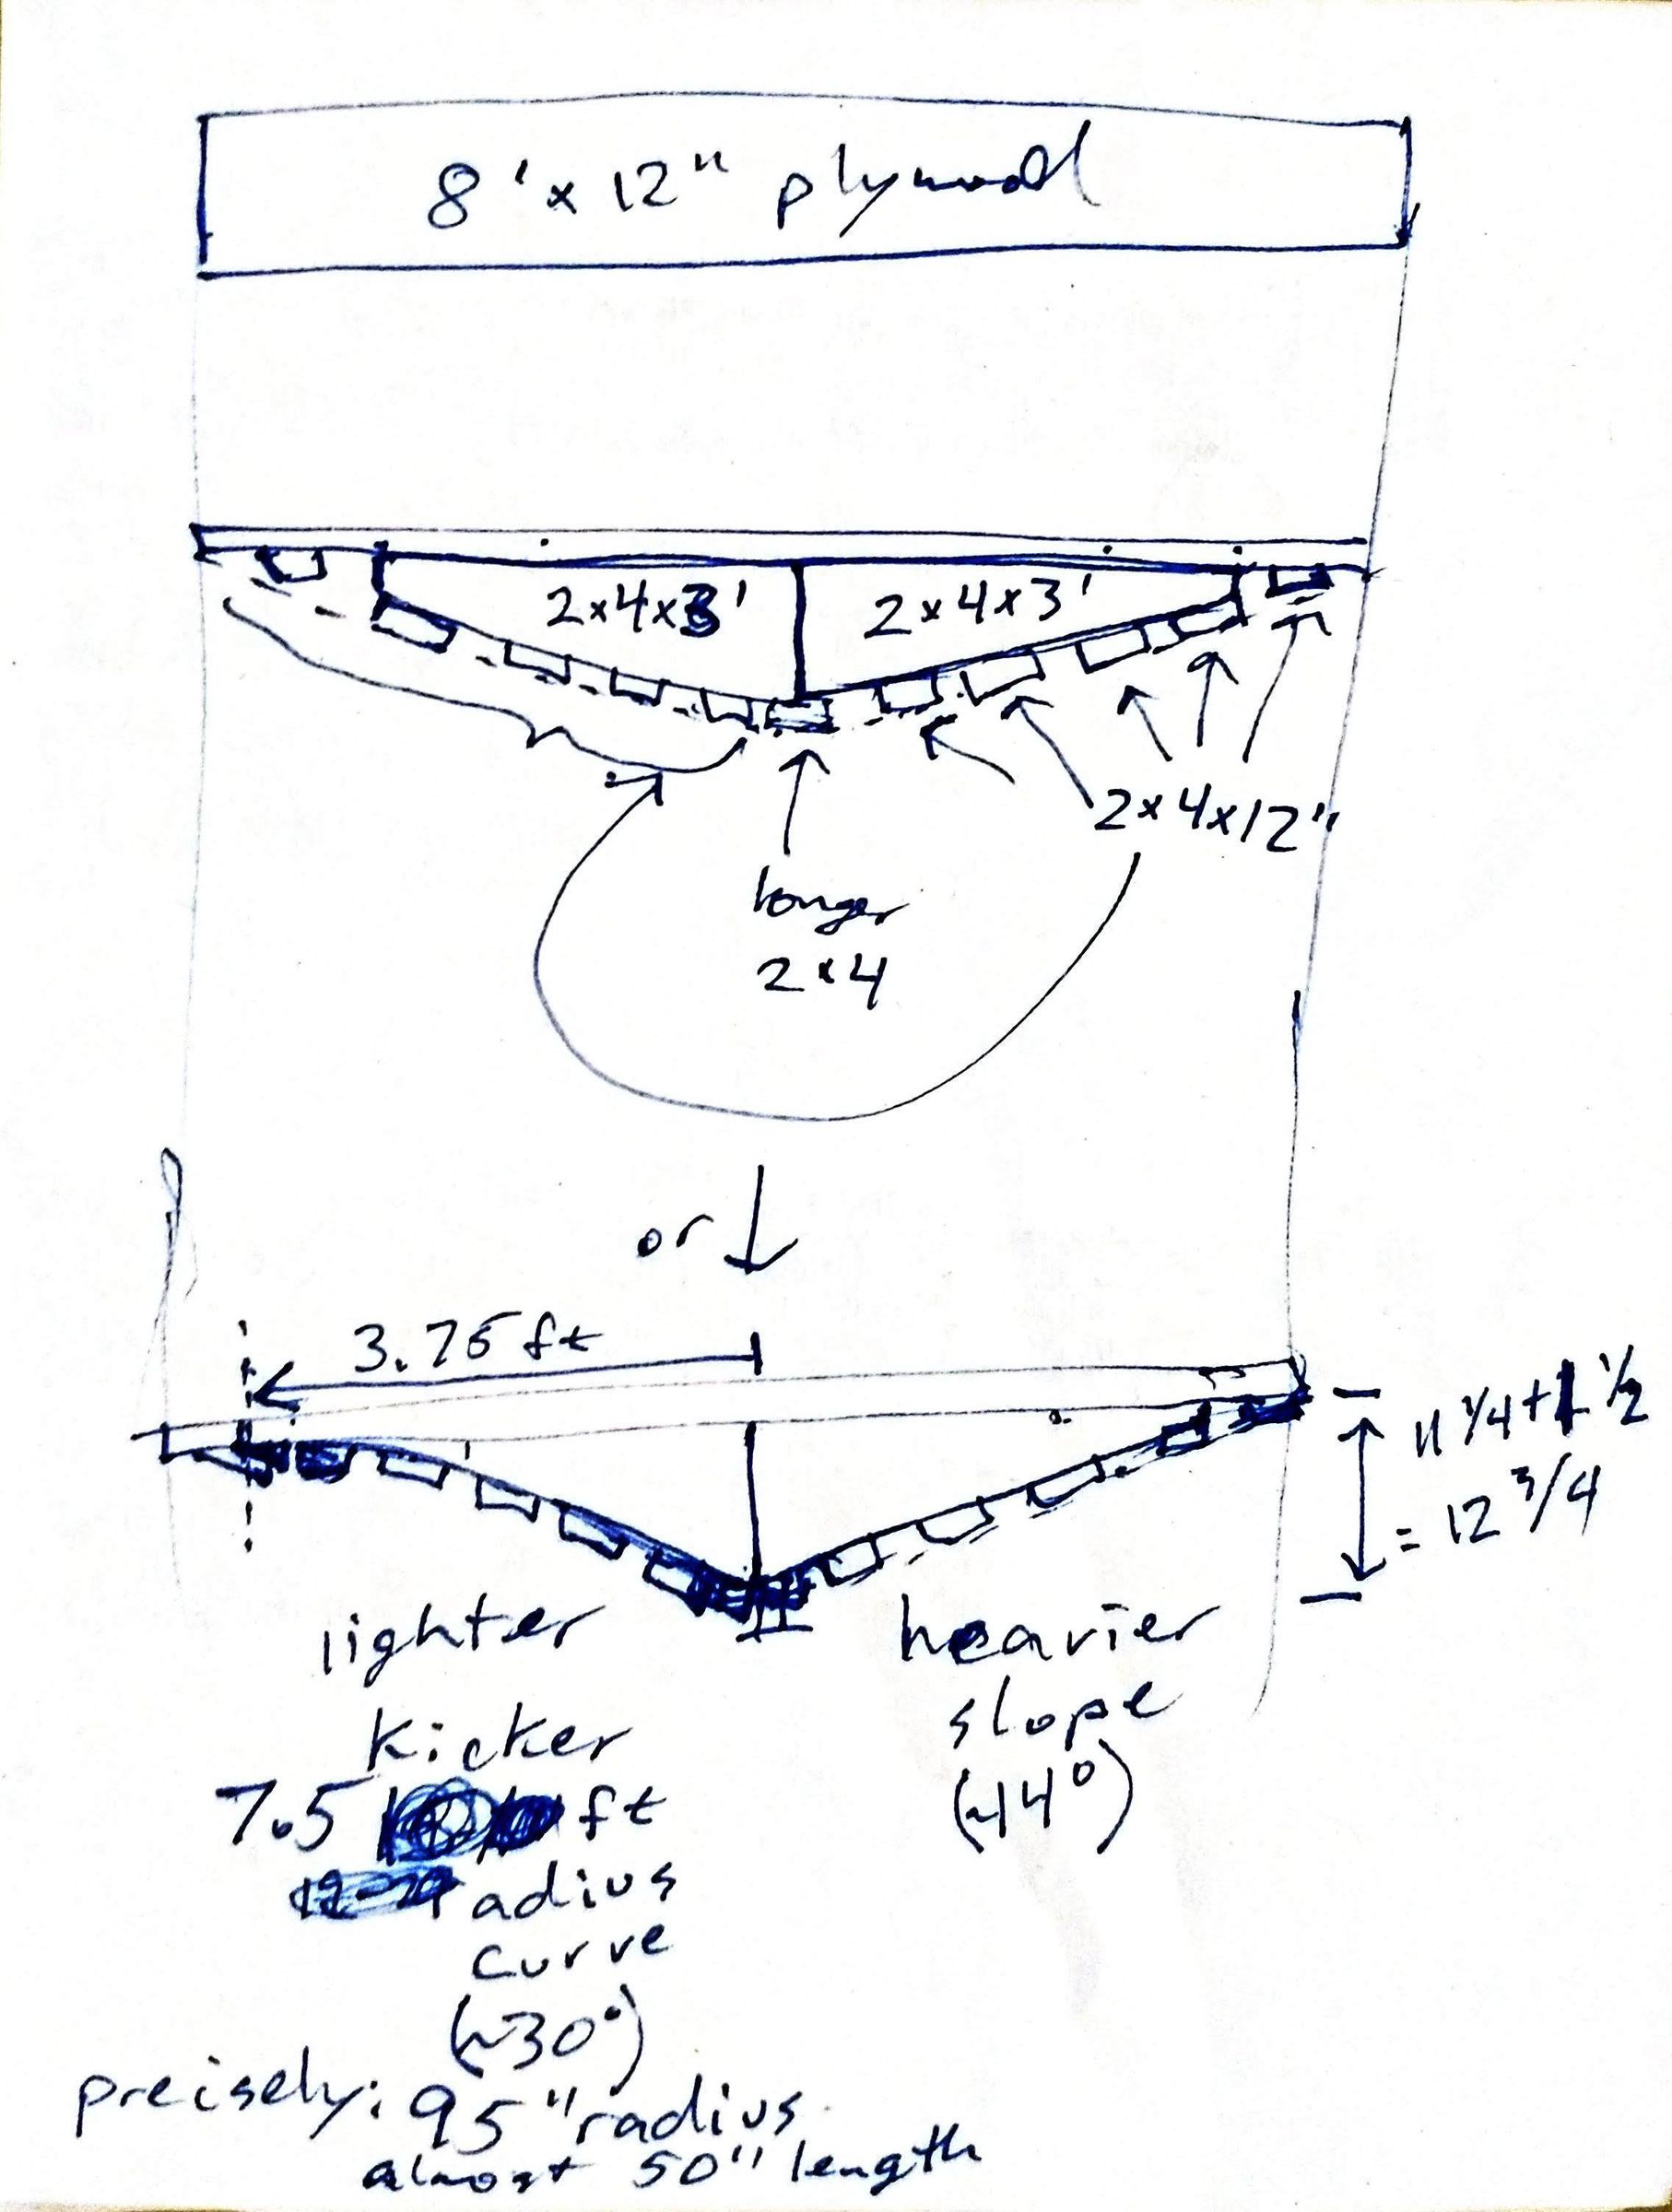 8' x 12" plywood
2x4x3' 2x4x3'
2x4x12"
longer
2x4
or
3.75 ft
11 1/4 + 1 1/2
= 12 3/4
lighter heavier
kicker slope
7.5 ft (~14°)
radius
curve
(~30°)
precisely: 95" radius
almost 50" length